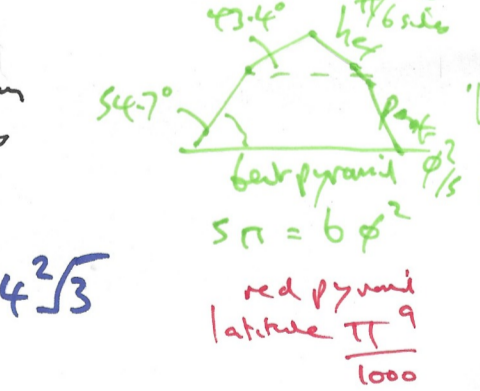 43.4°
π/6 sides
hex
54.7°
pent
bent pyramid φ²/5
5π = 6φ²
4²√3
red pyramid
latitude π⁹
1000